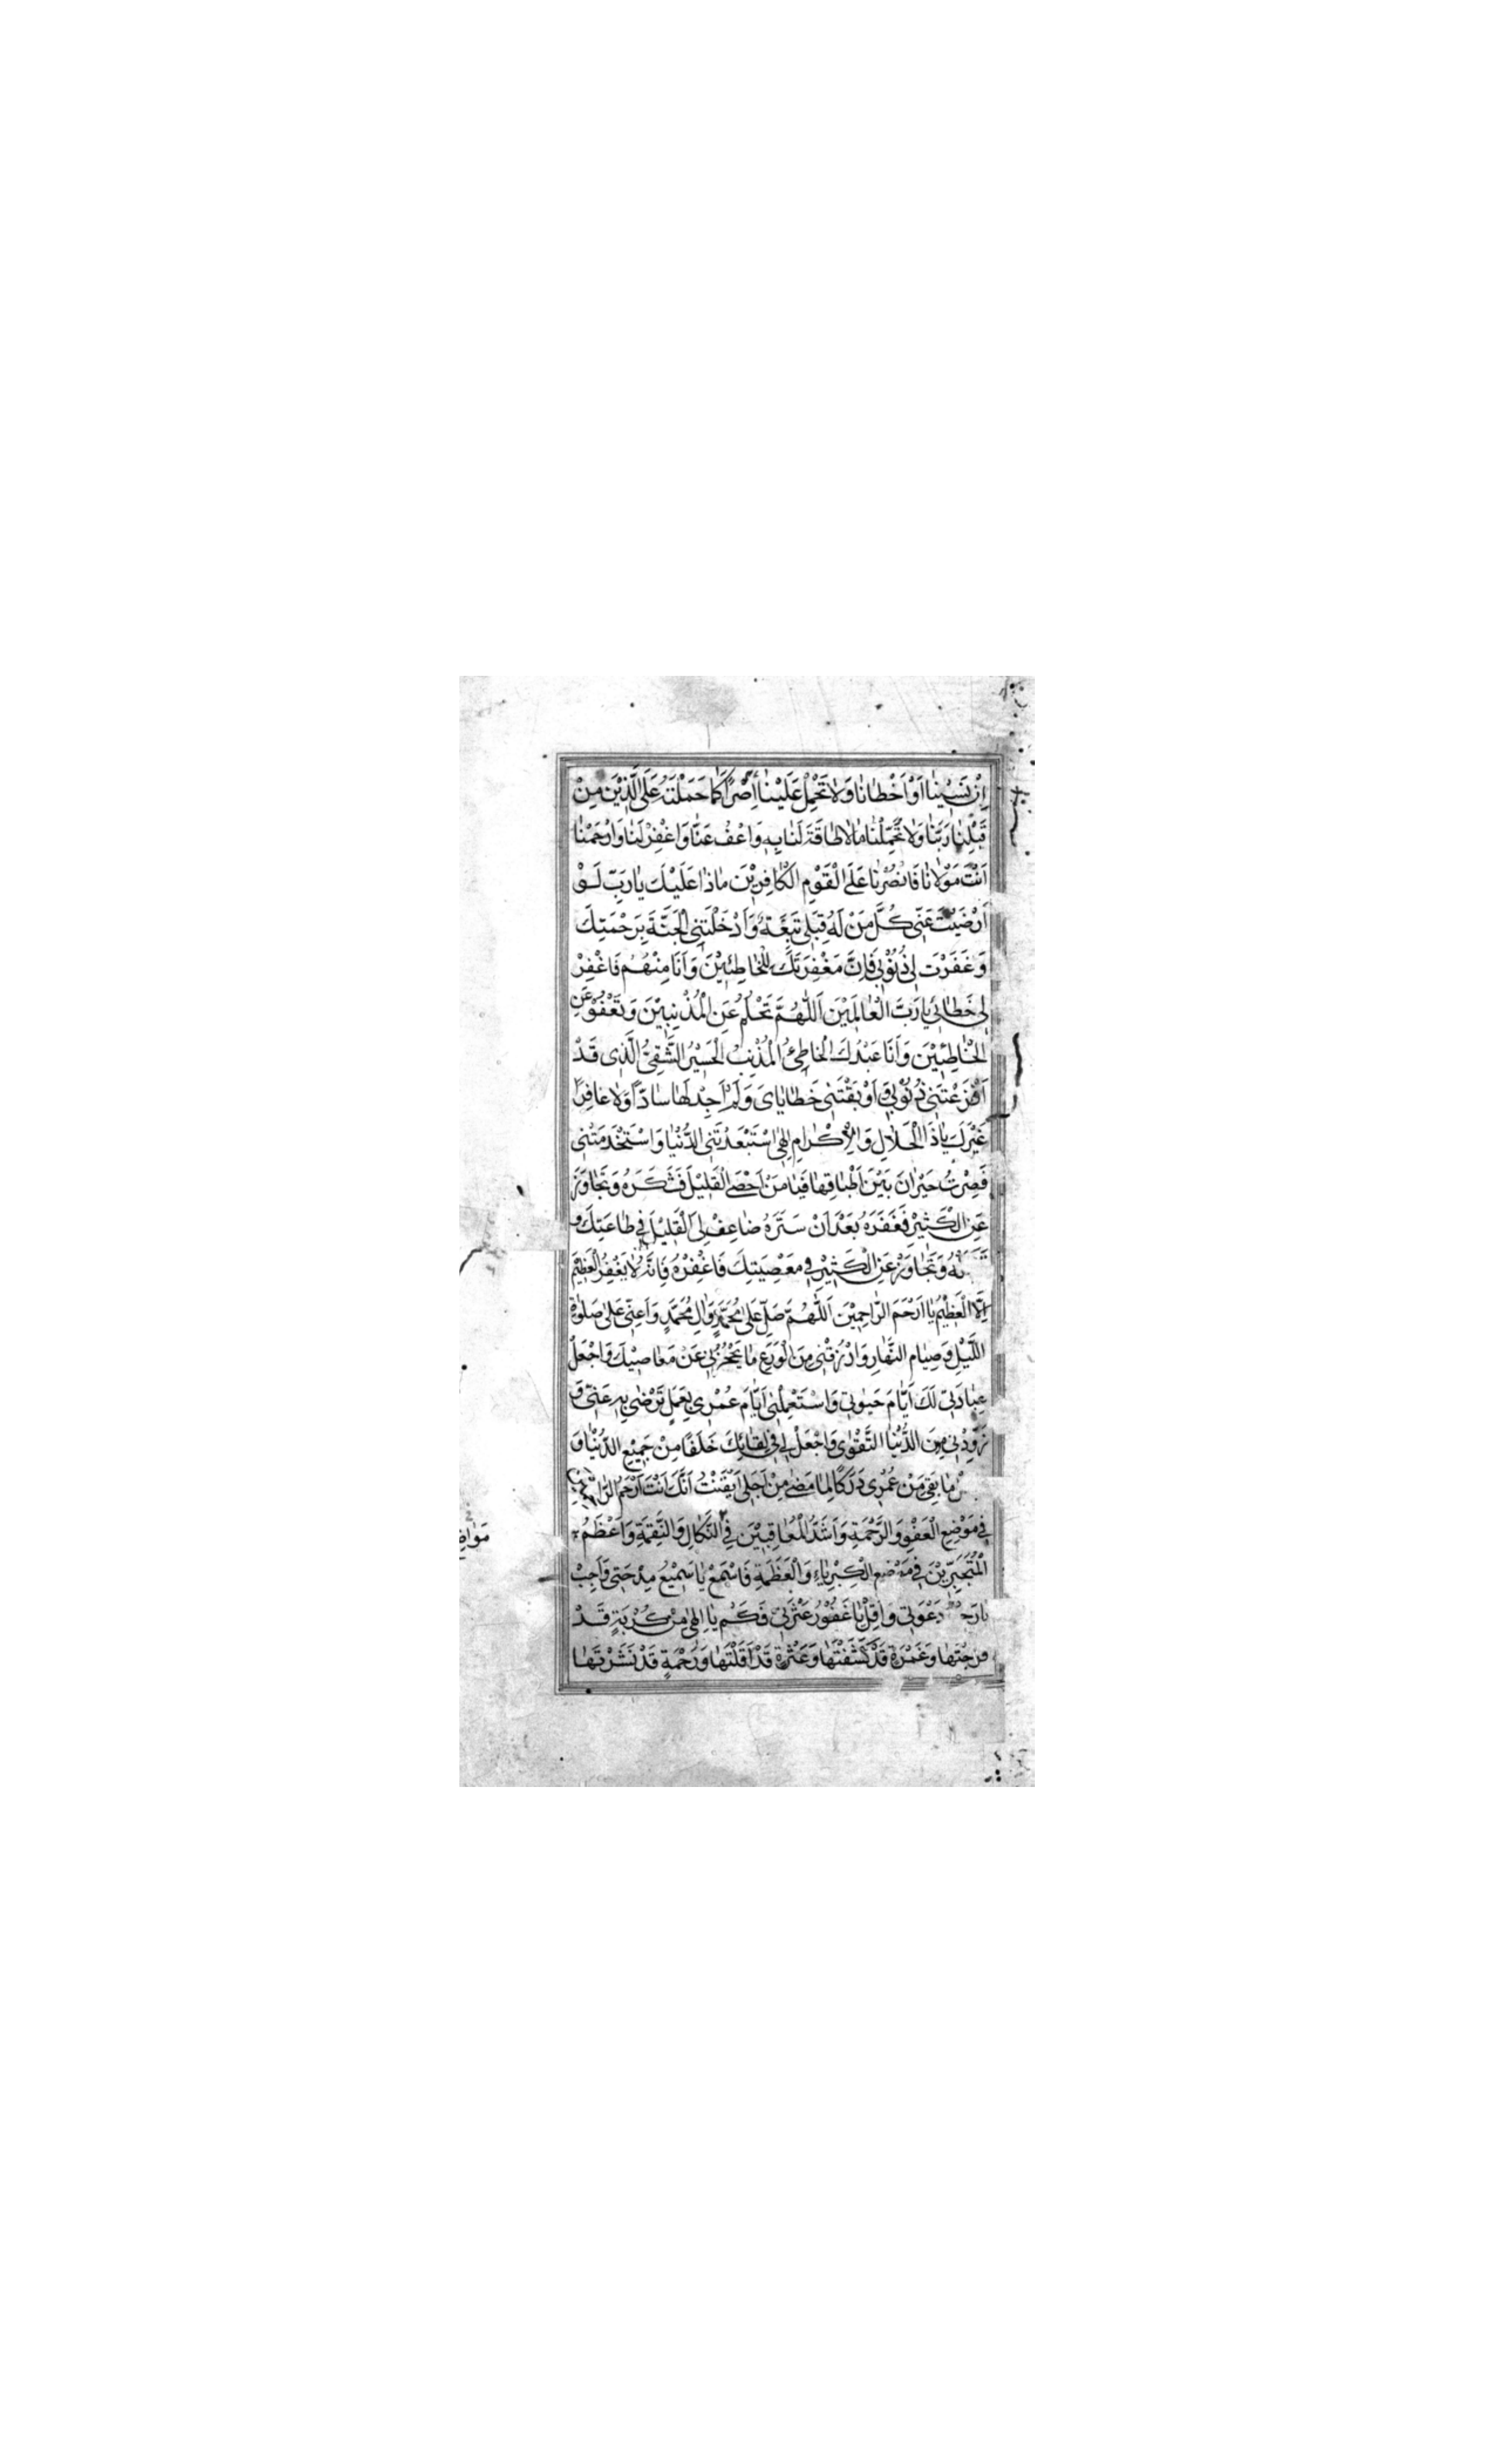 اِنْ نَسِيْنَا اَوْ اَخْطَانَا وَلَا تَحْمِلْ عَلَيْنَا اِصْرًا كَمَا حَمَلْتَهُ عَلَى الَّذِيْنَ مِنْ
قَبْلِنَا رَبَّنَا وَلَا تُحَمِّلْنَا مَا لَا طَاقَةَ لَنَا بِهِ وَاعْفُ عَنَّا وَاغْفِرْ لَنَا وَارْحَمْنَا
اَنْتَ مَوْلَانَا فَانْصُرْنَا عَلَى الْقَوْمِ الْكَافِرِيْنَ مَاذَا عَلَيْكَ يَا رَبِّ لَوْ
اَرْضَيْتَ عَنِّي كُلَّ مَنْ لَهُ قِبَلِي تَبِعَةٌ وَاَدْخَلْتَنِي الْجَنَّةَ بِرَحْمَتِكَ
وَغَفَرْتَ لِي ذُنُوْبِي فَاِنَّ مَغْفِرَتَكَ لِلْخَاطِئِيْنَ وَاَنَا مِنْهُمْ فَاغْفِرْ
لِي خَطَائِي يَا رَبَّ الْعَالَمِيْنَ اَللّٰهُمَّ تَحْلُمُ عَنِ الْمُذْنِبِيْنَ وَتَعْفُوْ عَنِ
الْخَاطِئِيْنَ وَاَنَا عَبْدُكَ الْخَاطِئُ الْمُذْنِبُ الْحَسِيْرُ الشَّقِيُّ الَّذِي قَدْ
اَفْزَعَتْنِي ذُنُوْبِي وَاَوْبَقَتْنِي خَطَايَايَ وَلَمْ اَجِدْ لَهَا سَادًّا وَلَا غَافِرًا
غَيْرَكَ يَا ذَا الْجَلَالِ وَالْاِكْرَامِ اِلٰهِي اسْتَبْعَدَتْنِي الدُّنْيَا وَاسْتَخْدَمَتْنِي
فَصِرْتُ حَيْرَانَ بَيْنَ اَطْبَاقِهَا فَيَا مَنْ اَحْصَى الْقَلِيْلَ فَشَكَرَهُ وَتَجَاوَزَ
عَنِ الْكَثِيْرِ فَغَفَرَهُ بَعْدَ اَنْ سَتَرَهُ ضَاعِفْ لِيَ الْقَلِيْلَ فِي طَاعَتِكَ وَ
وَتَجَاوَزْ عَنِ الْكَثِيْرِ فِي مَعْصِيَتِكَ فَاغْفِرْهُ فَاِنَّهُ لَا يَغْفِرُ الْعَظِيْمَ
اِلَّا الْعَظِيْمُ يَا اَرْحَمَ الرَّاحِمِيْنَ اَللّٰهُمَّ صَلِّ عَلٰى مُحَمَّدٍ وَاٰلِ مُحَمَّدٍ وَاَعِنِّي عَلٰى صَلٰوةِ
اللَّيْلِ وَصِيَامِ النَّهَارِ وَارْزُقْنِي مِنَ الْوَرَعِ مَا يَحْجُزُنِي عَنْ مَعَاصِيْكَ وَاجْعَلْ
عِبَادَتِي لَكَ اَيَّامَ حَيٰوتِي وَاسْتَعْمِلْنِي اَيَّامَ عُمْرِي بِعَمَلٍ تَرْضٰى بِهِ عَنِّي وَ
زَوِّدْنِي مِنَ الدُّنْيَا التَّقْوٰى وَاجْعَلْ لِي فِي لِقَائِكَ خَلَفًا مِنْ جَمِيْعِ الدُّنْيَا وَ
مَا بَقِيَ مِنْ عُمُرِي دَرَكًا لِمَا مَضٰى مِنْ اَجَلِي اَيْقَنْتُ اَنَّكَ اَنْتَ اَرْحَمُ الرَّاحِمِيْنَ
فِي مَوْضِعِ الْعَفْوِ وَالرَّحْمَةِ وَاَشَدُّ الْمُعَاقِبِيْنَ فِي النَّكَالِ وَالنَّقِمَةِ وَاَعْظَمُ
الْمُتَجَبِّرِيْنَ فِي مَوْضِعِ الْكِبْرِيَاءِ وَالْعَظَمَةِ فَاسْمَعْ يَا سَمِيْعُ مِدْحَتِي وَاَجِبْ
يَا رَحِيْمُ دَعْوَتِي وَاَقِلْ يَا غَفُوْرُ عَثْرَتِي فَكَمْ يَا اِلٰهِي مِنْ كُرْبَةٍ قَدْ
فَرَّجْتَهَا وَغَمْرَةٍ قَدْ كَشَفْتَهَا وَعَثْرَةٍ قَدْ اَقَلْتَهَا وَرَحْمَةٍ قَدْ نَشَرْتَهَا